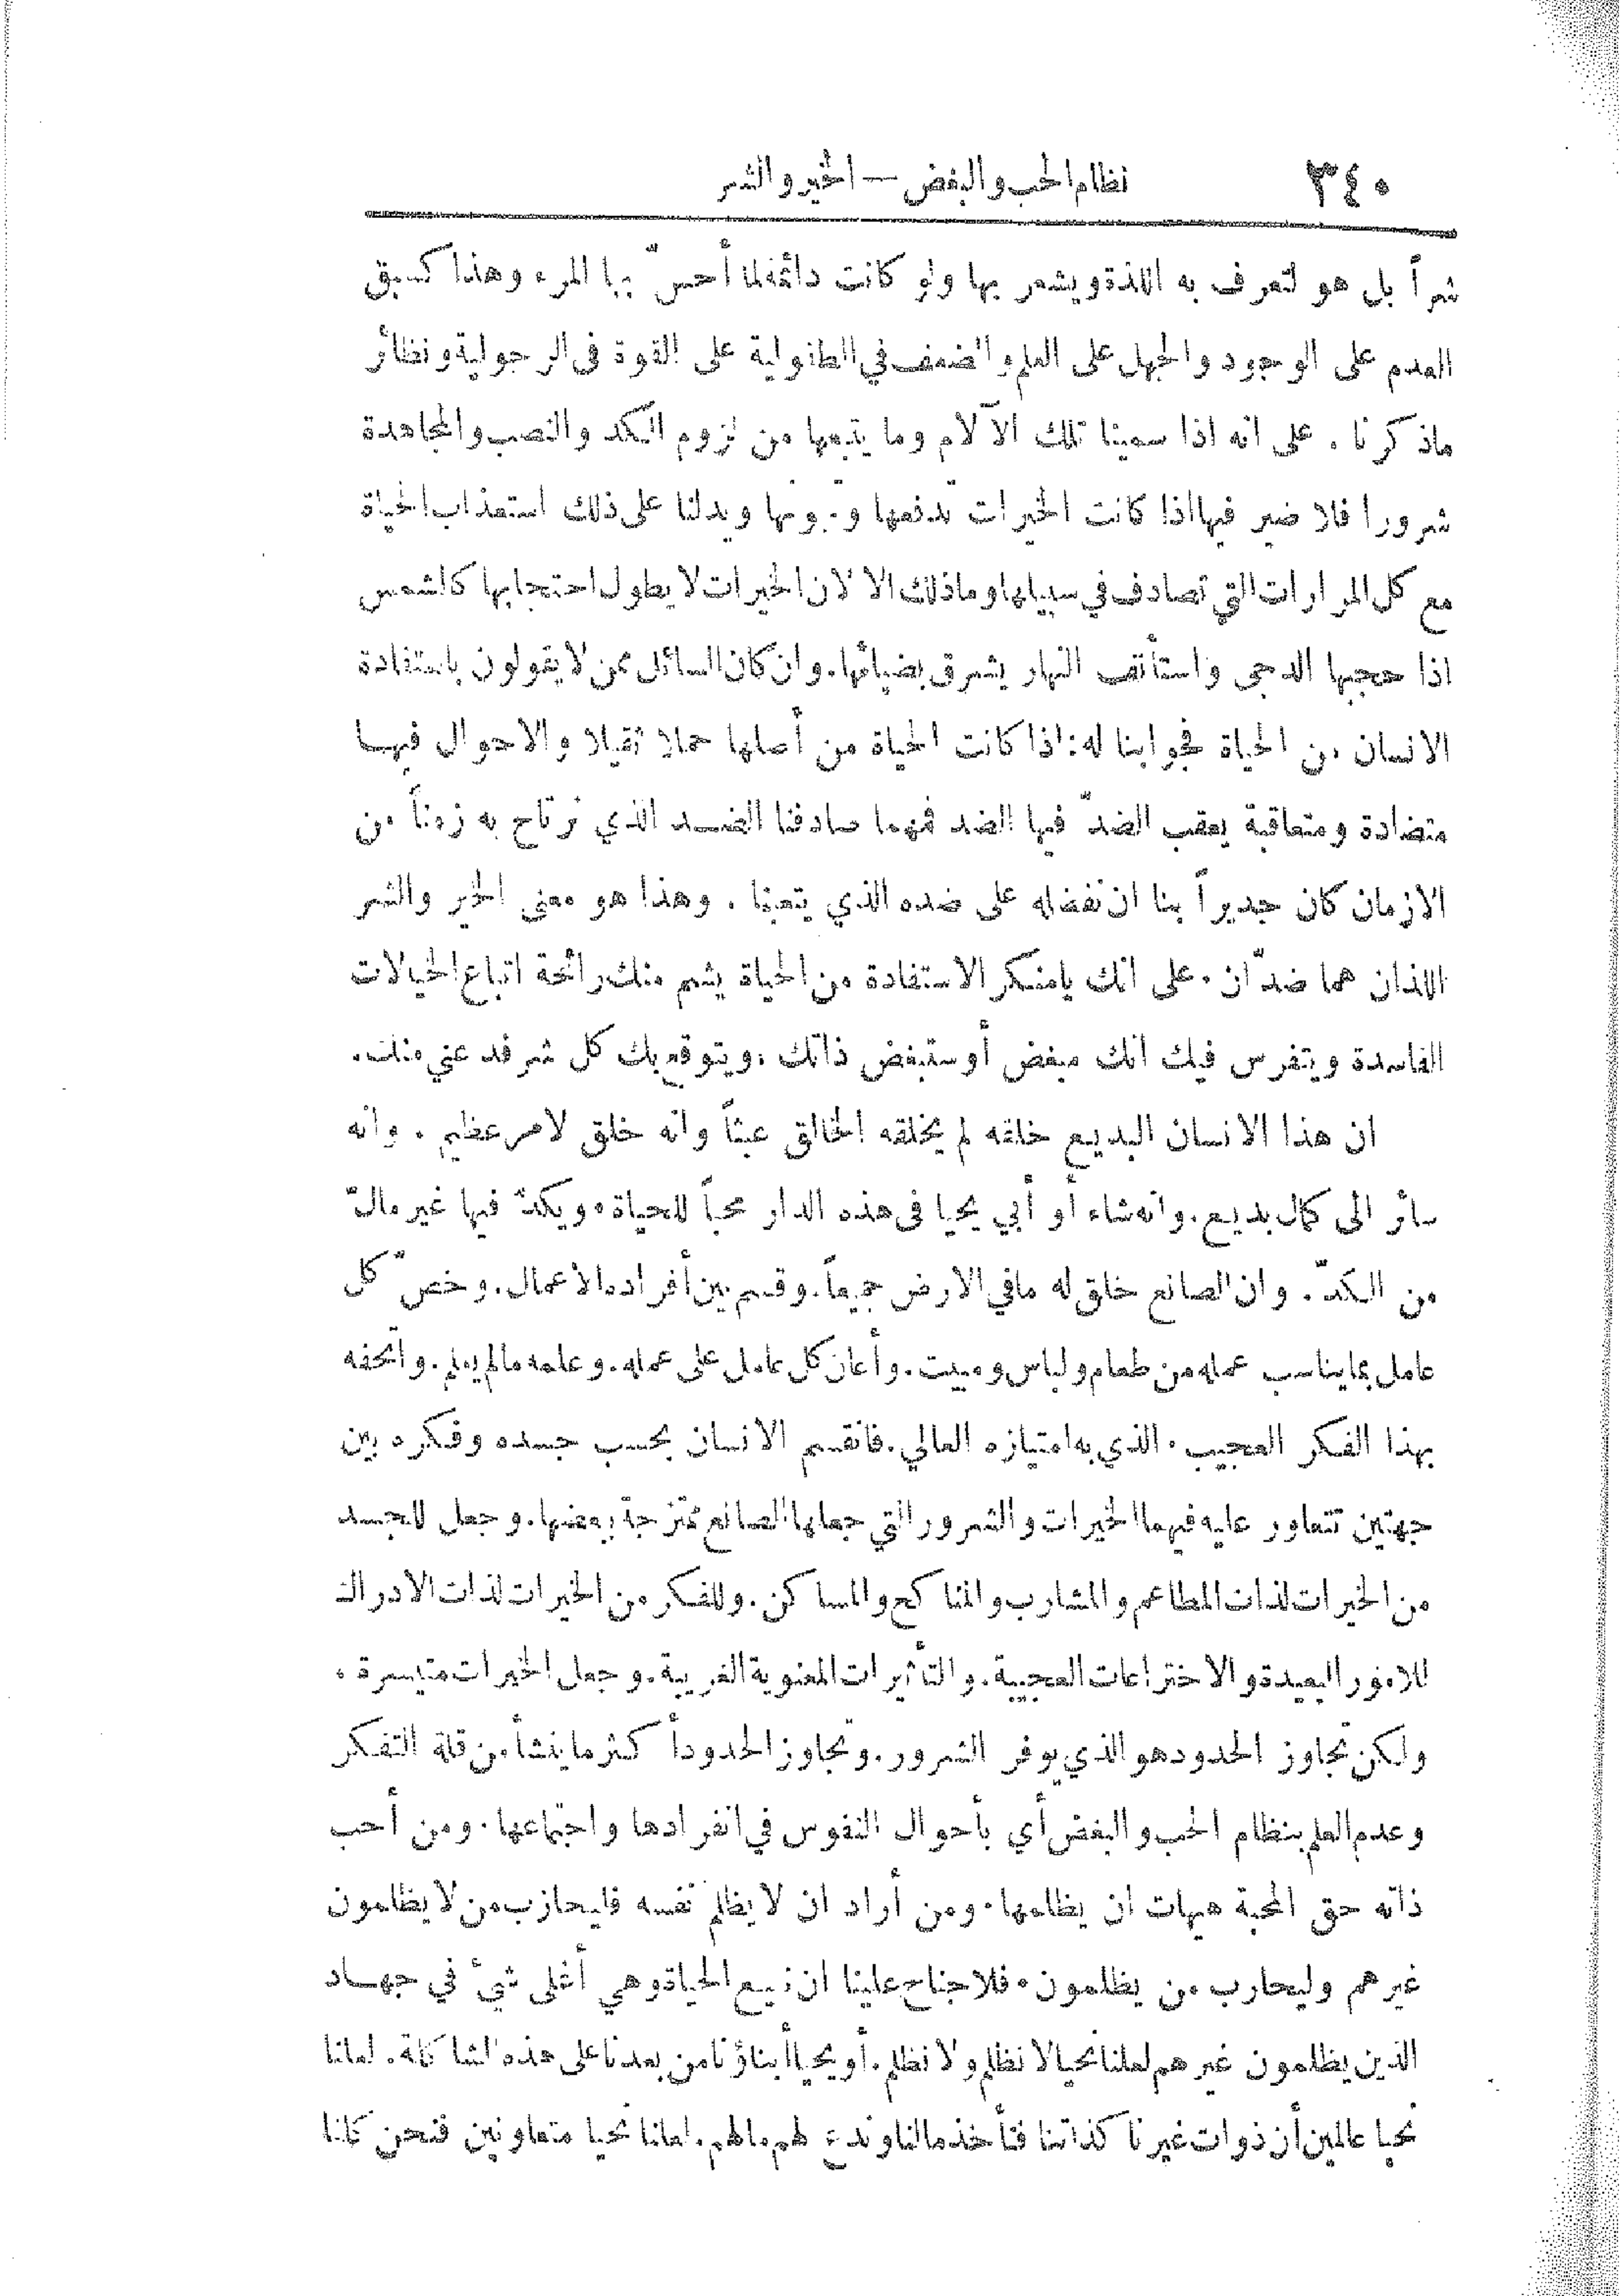 ٣٤٠
نظام الحب والبغض — الخير والشر
شراً بل هو لتعرف به اللذة ويشعر بها ولو كانت دائمة لما أحسّ بها المرء وهذا كسبق
العدم على الوجود والجهل على العلم والضعف في الطفولية على القوة فى الرجولية ونظائر
ماذكرنا . على انه اذا سمينا تلك الآلام وما يتبعها من لزوم الكد والنصب والمجاهدة
شرورا فلا ضير فيها اذا كانت الخيرات تدفعها و ويدلنا على ذلك استعذاب الحياة
مع كل المرارات التي تصادف في سبيلها وماذلك الا لان الخيرات لا يطول احتجابها كالشمس
اذا حجبها الدجى واستأنف النهار يشرق بضيائها . وان كان السائل ممن لا يقولون باستفادة
الانسان من الحياة فجوابنا له : اذا كانت الحياة من أصلها حملا ثقيلا والاحوال فيها
متضادة ومتعاقبة يعقب الضدّ فيها الضد فمهما صادفنا الضد الذي نرتاح به زمناً من
الازمان كان جديراً بنا ان نفضله على ضده الذي يتعبنا . وهذا هو معنى الخير والشر
اللذان هما ضدّان . على انك يامنكر الاستفادة من الحياة يشم منك رائحة اتباع الخيالات
الفاسدة ويتفرس فيك انك مبغض أو ستبغض ذاتك . ويتوقع بك كل شر فدعني منك .
ان هذا الانسان البديع خلقه لم يخلقه الخالق عبثاً وانه خلق لامر عظيم . وانه
سائر الى كمال بديع . وانه شاء أو أبي يحيا فى هذه الدار محباً للحياة . ويكدّ فيها غير مالّ
من الكدّ . وان الصانع خلق له مافي الارض جميعاً . وقسم بين أفراده الأعمال . وخصّ كل
عامل بما يناسب عمله من طعام ولباس ومبيت . وأعان كل عامل على عمله . وعلمه مالم يعلم . واتحفه
بهذا الفكر العجيب . الذي به امتيازه العالي . فانقسم الانسان بحسب جسده وفكره بين
جهتين تتعاور عليه فيهما الخيرات والشرور التي جعلها الصانع ممتزجة ببعضها . وجعل للجسد
من الخيرات لذات المطاعم والمشارب والمناكح والمساكن . وللفكر من الخيرات لذات الادراك
للامور البعيدة والاختراعات العجيبة . والتأثيرات المعنوية الغريبة . وجعل الخيرات متيسرة .
ولكن تجاوز الحدود هو الذي يوفر الشرور . وتجاوز الحدود أكثر ما ينشأ من قلة التفكر
وعدم العلم بنظام الحب والبغض أي بأحوال النفوس في انفرادها واجتماعها . ومن أحب
ذاته حق المحبة هيهات ان يظلمها . ومن أراد ان لا يظلم نفسه فليحازب من لا يظلمون
غيرهم وليحارب من يظلمون . فلا جناح علينا ان نبيع الحياة وهي أغلى شيء في جهاد
الذين يظلمون غيرهم لعلنا نحيا لا نظلم ولا نظلم . أو يحيا أبناؤنا من بعدنا على هذه الشاكلة . لعلنا
نحيا عالمين أن ذوات غيرنا كذاتنا فنأخذ مالنا وندع لهم مالهم . لعلنا نحيا متعاونين فنحن كلنا